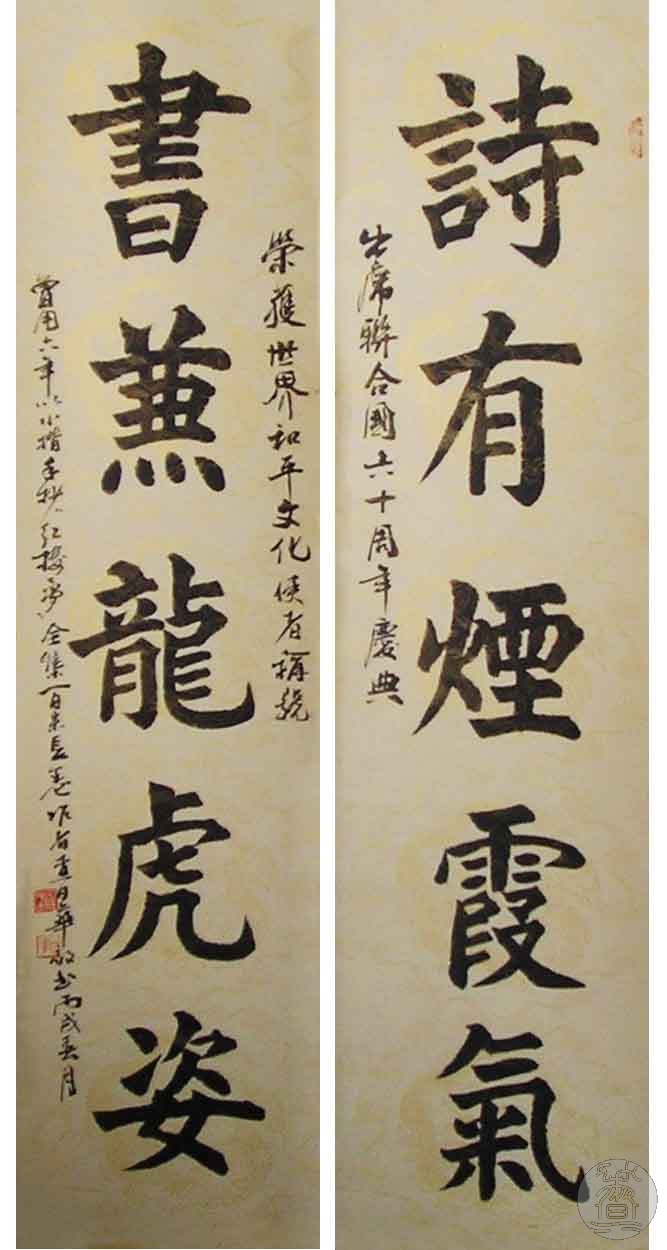 詩有煙霞氣
出席聯合國六十周年慶典
榮獲世界和平文化使者稱號
書蒹龍虎姿
曾用六年以小楷手抄红楼夢全集百米長卷作者查日華敬书丙戌春月